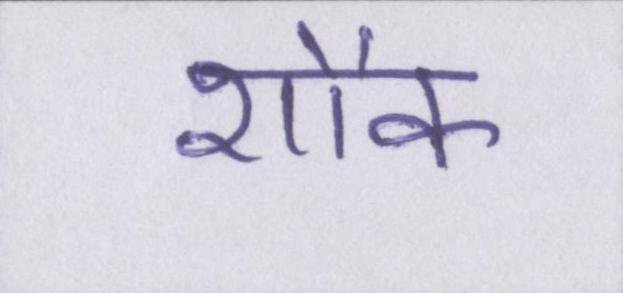 शौक